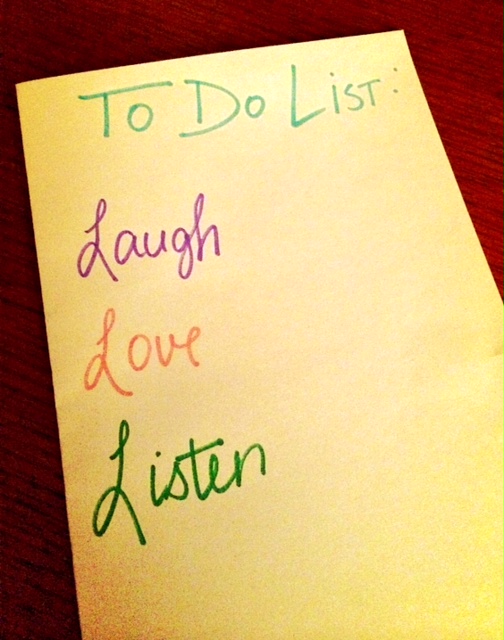 To Do List:
Laugh
Love
Listen